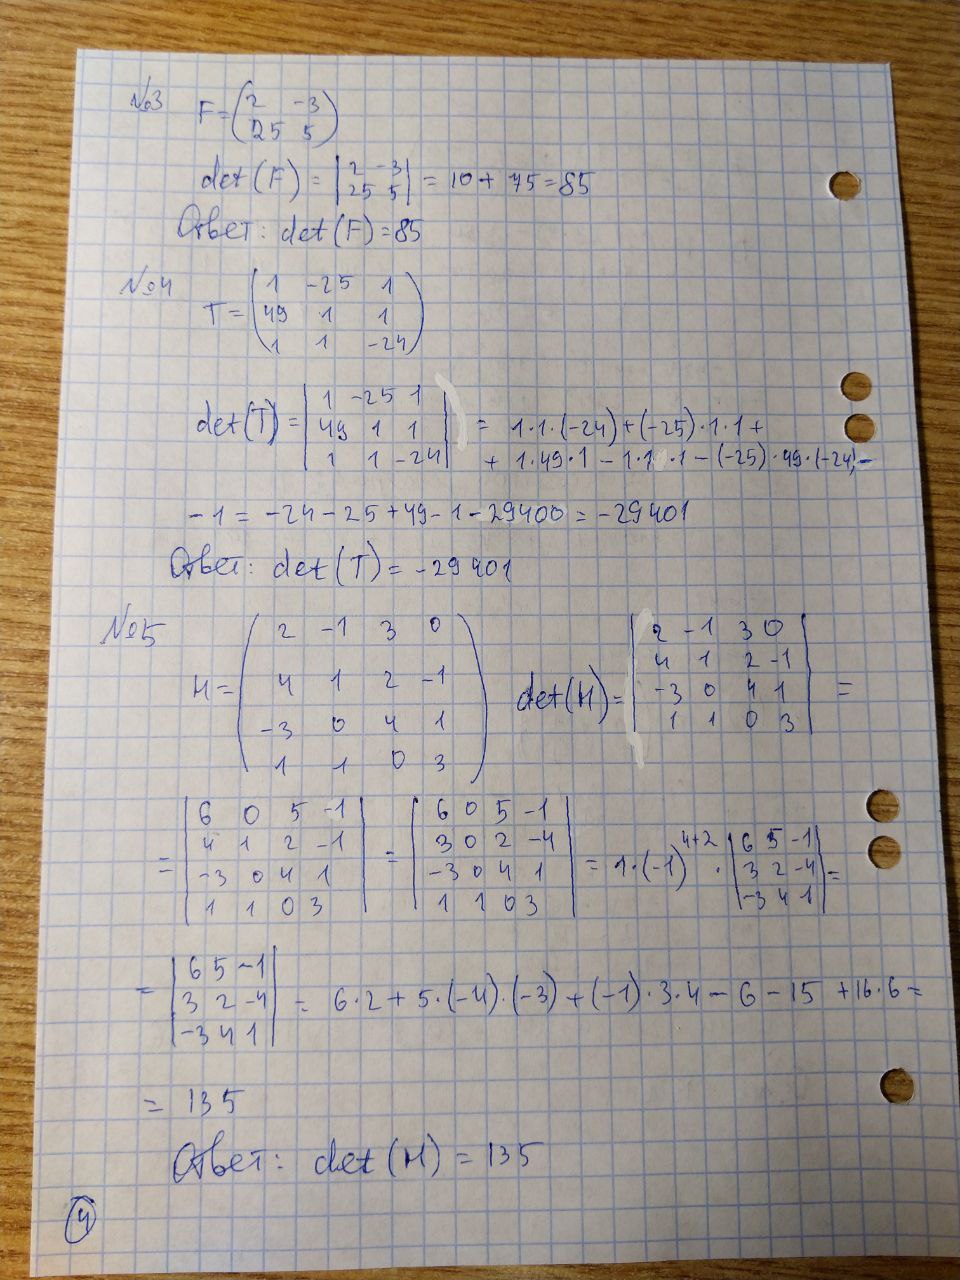 №3 F = (2 -3
25 5)
det(F) = |2 -3
25 5| = 10 + 75 = 85
Ответ: det(F) = 85
№4
T = (1 -25 1
49 1 1
1 1 -24)
det(T) = |1 -25 1
49 1 1
1 1 -24| = 1·1·(-24) + (-25)·1·1 +
+ 1·49·1 - 1·1·1 - (-25)·49·(-24) -
- 1 = -24 - 25 + 49 - 1 - 29400 = -29401
Ответ: det(T) = -29401
№5
H = (2 -1 3 0
4 1 2 -1
-3 0 4 1
1 1 0 3)
det(H) = |2 -1 3 0
4 1 2 -1
-3 0 4 1
1 1 0 3| =
= |6 0 5 -1
4 1 2 -1
-3 0 4 1
1 1 0 3|
= |6 0 5 -1
3 0 2 -4
-3 0 4 1
1 1 0 3| = 1·(-1)^4+2 · |6 5 -1
3 2 -4
-3 4 1| =
= |6 5 -1
3 2 -4
-3 4 1| = 6·2 + 5·(-4)·(-3) + (-1)·3·4 - 6 - 15 + 16·6 =
= 135
Ответ: det(H) = 135
4